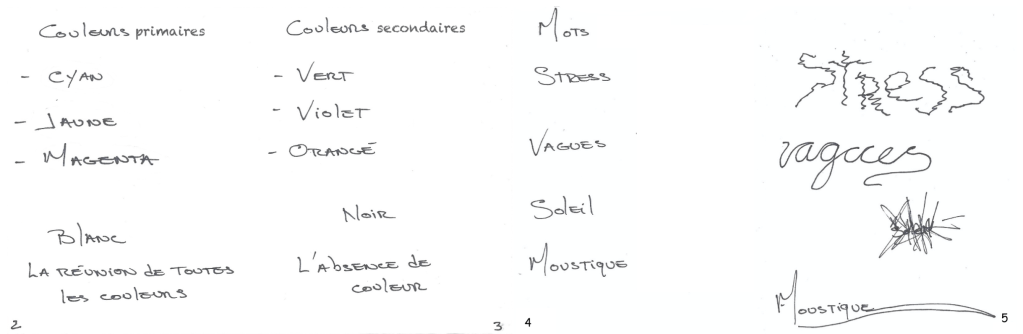 Couleurs primaires
- CYAN
- JAUNE
- MAGENTA
BLANC
LA RÉUNION de TOUTES
les couleurs
2
Couleurs secondaires
- VERT
- VIOLET
- ORANGÉ
NOIR
L'Absence de
couleur
3
MOTS
STRESS
VAGUES
Soleil
MOUSTIQUE
4
STRESS
vagues
Soleil
MOUSTIQUE
5